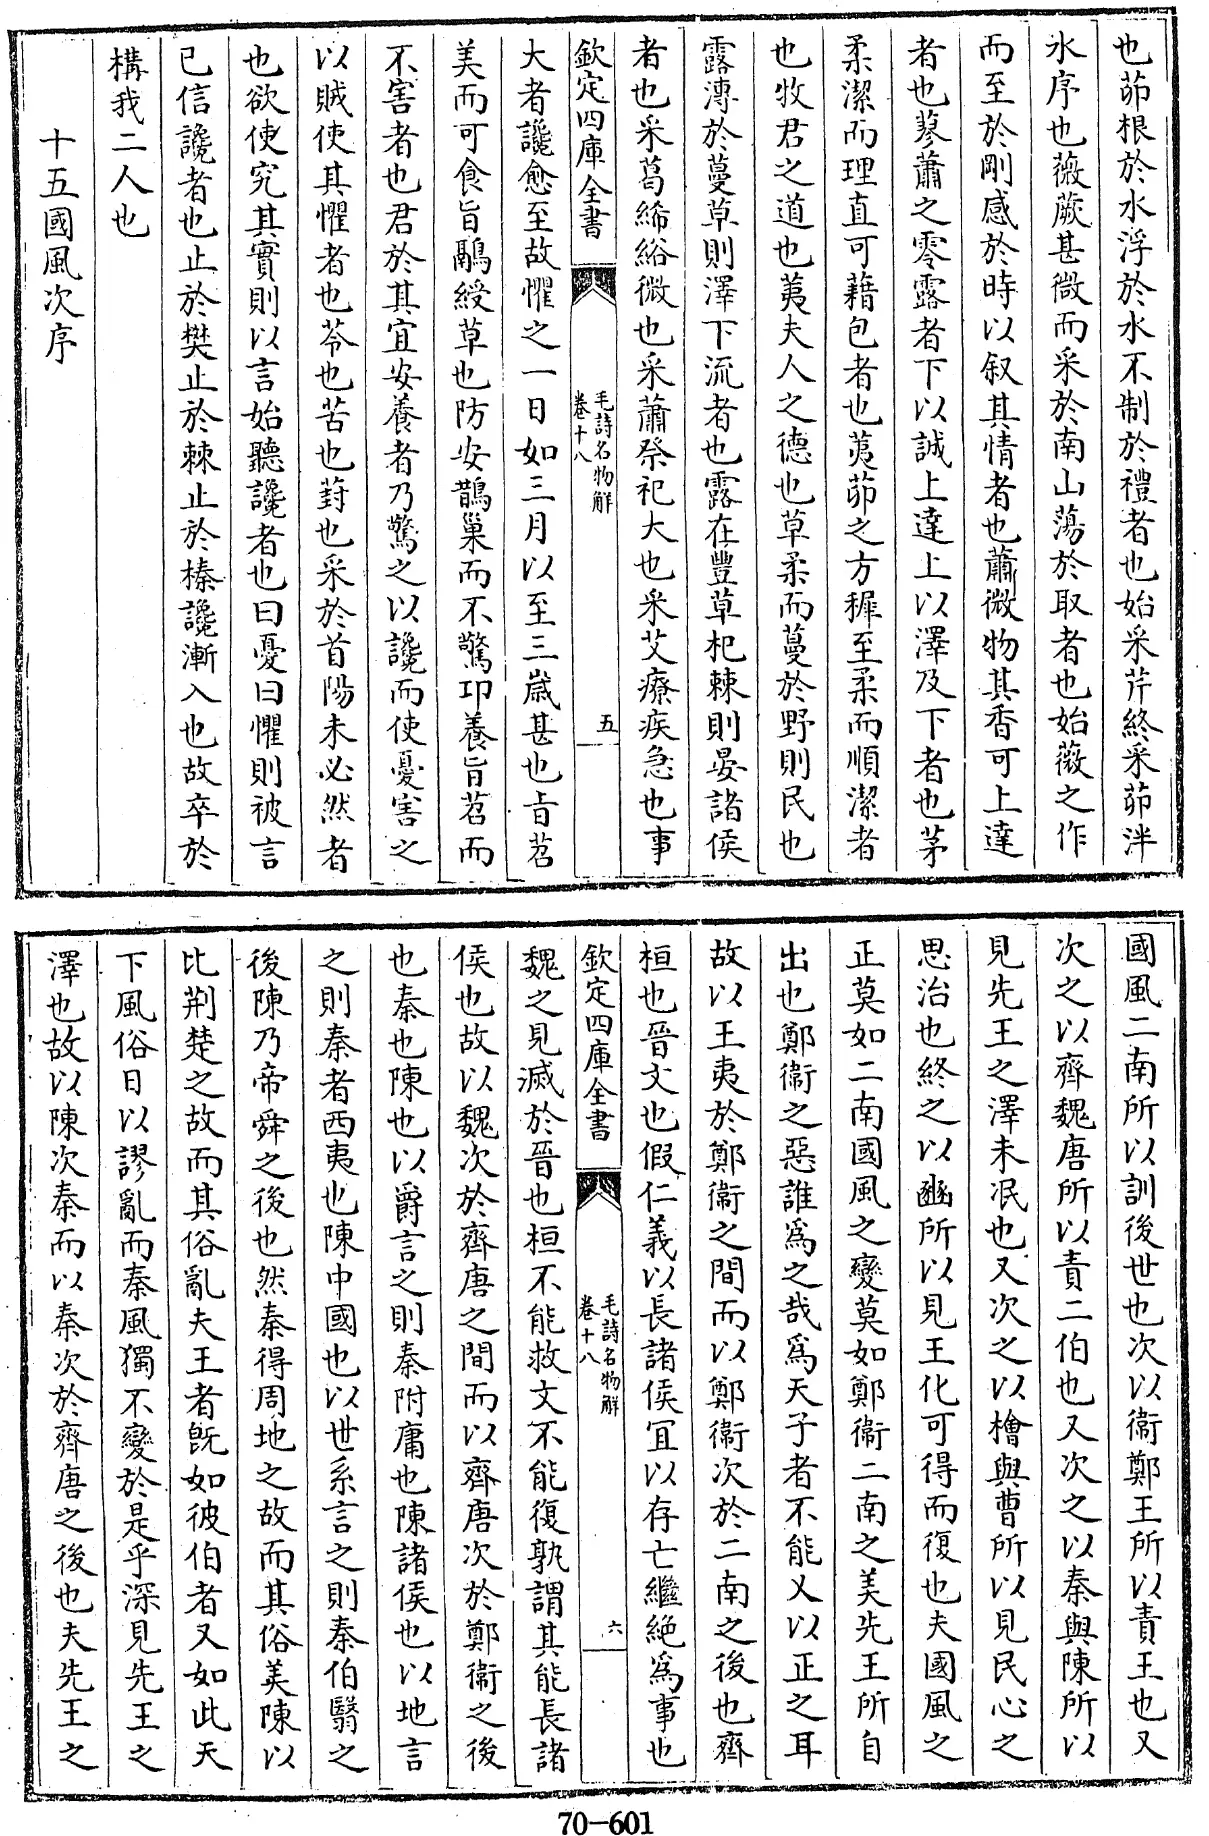 也茆根於水浮於水不制於禮者也始采芹終采茆泮
水序也薇蕨甚微而采於南山蕩於取者也始薇之作
而至於剛感於時以叙其情者也蕭微物其香可上達
者也蓼蕭之零露者下以誠上達上以澤及下者也茅
柔潔而理直可藉包者也荑茆之方穉至柔而順潔者
也牧君之道也荑夫人之德也草柔而蔓於野則民也
露漙於蔓草則澤下流者也露在豐草杞棘則晏諸侯
者也采葛絺綌微也采蕭祭祀大也采艾療疾急也事
欽定四庫全書
毛詩名物解
卷十八
五
大者讒愈至故懼之一日如三月以至三歲甚也旨苕
美而可食旨鷊綬草也防安鵲巢而不驚卭養旨苕而
不害者也君於其宜安養者乃驚之以讒而使憂害之
以賊使其懼者也苓也苦也葑也采於首陽未必然者
也欲使究其實則以言始聽讒者也曰憂曰懼則被言
已信讒者也止於樊止於棘止於榛讒漸入也故卒於
構我二人也
十五國風次序
國風二南所以訓後世也次以衞鄭王所以責王也又
次之以齊魏唐所以責二伯也又次之以秦與陳所以
見先王之澤未泯也又次之以檜與曹所以見民心之
思治也終之以豳所以見王化可得而復也夫國風之
正莫如二南國風之變莫如鄭衞二南之美先王所自
出也鄭衞之惡誰爲之哉爲天子者不能乂以正之耳
故以王夷於鄭衞之間而以鄭衞次於二南之後也齊
桓也晉文也假仁義以長諸侯宜以存亡繼絶爲事也
欽定四庫全書
毛詩名物解
卷十八
六
魏之見滅於晉也桓不能救文不能復孰謂其能長諸
侯也故以魏次於齊唐之間而以齊唐次於鄭衞之後
也秦也陳也以爵言之則秦附庸也陳諸侯也以地言
之則秦者西夷也陳中國也以世系言之則秦伯翳之
後陳乃帝舜之後也然秦得周地之故而其俗美陳以
比荆楚之故而其俗亂夫王者旣如彼伯者又如此天
下風俗日以謬亂而秦風獨不變於是乎深見先王之
澤也故以陳次秦而以秦次於齊唐之後也夫先王之
70-601